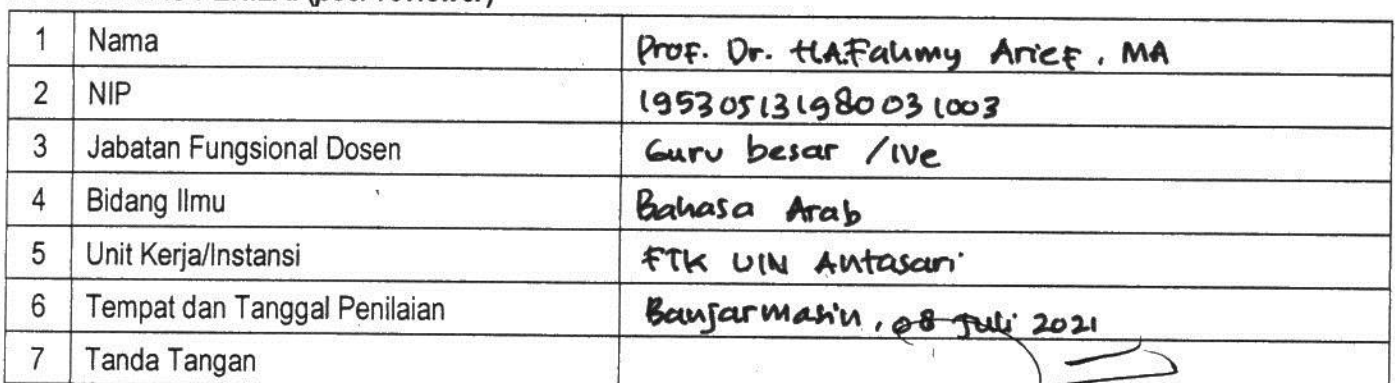 1 Nama Prof. Dr. H.A.Fahmy Arief, MA
2 NIP 195305131980031003
3 Jabatan Fungsional Dosen Guru besar /IVe
4 Bidang Ilmu Bahasa Arab
5 Unit Kerja/Instansi FTK UIN Antasari
6 Tempat dan Tanggal Penilaian Banjarmasin, 08 Juli 2021
7 Tanda Tangan